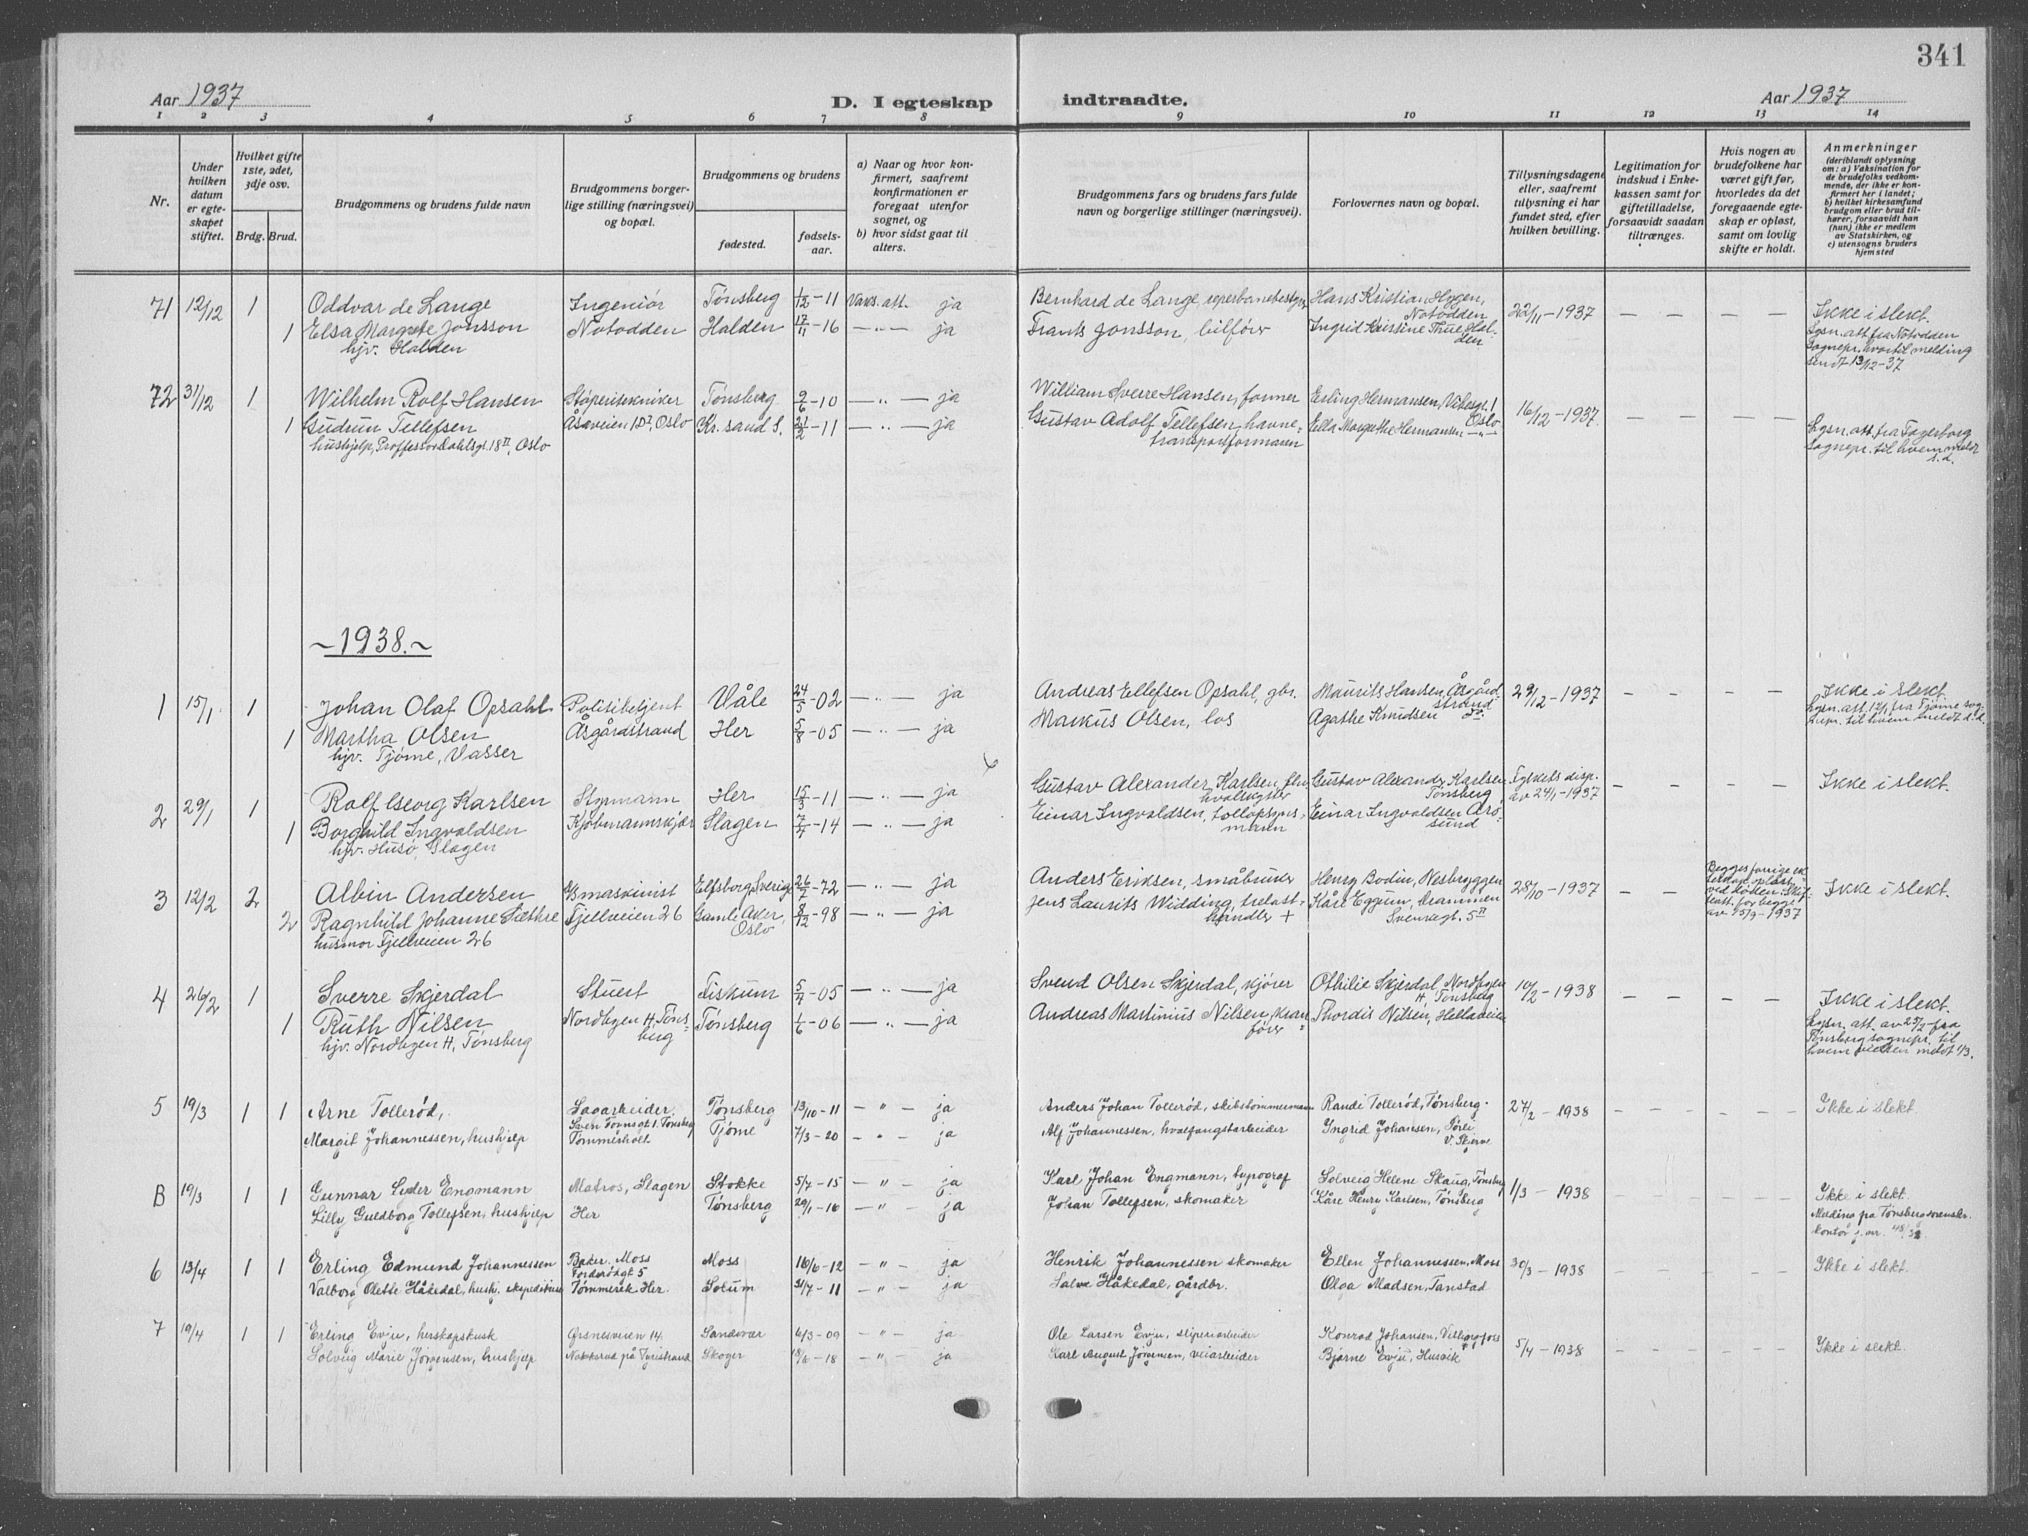 341
Aar 1937
D. I egteskap indtraadte.
Aar 1937
1 2 3 4 5 6 7 8 9 10 11 12 13 14
Nr.
Under hvilken datum er egteskapet stiftet.
Hvilket gifte 1ste, 2det, 3dje osv.
Brdg. Brud.
Brudgommens og brudens fulde navn
Brudgommens borgerlige stilling (næringsvei) og bopæl.
Brudgommens og brudens
fødested.
fødselsaar.
a) Naar og hvor konfirmert, saafremt konfirmationen er foregaat utenfor sognet, og
b) hvor sidst gaat til alters.
Brudgommens fars og brudens fars fulde navn og borgerlige stillinger (næringsvei).
Forlovernes navn og bopæl.
Tillysningsdagene eller, saafremt tillysning ei har fundet sted, efter hvilken bevilling.
Legitimation for indskud i Enkekassen samt for giftetilladelse, forsaavidt saadan tiltrænges.
Hvis nogen av brudefolkene har været gift før, hvorledes da det foregaaende egteskap er opløst, samt om lovlig skifte er holdt.
Anmerkninger
(deriblandt oplysning om: a) Vaksination for de brudefolks vedkommende, der ikke er konfirmert her i landet; b) hvilket kirkesamfund brudgom eller brud tilhører, forsaavidt han (hun) ikke er medlem av Statskirken, og c) utensogns bruders hjemsted
71 12/12 1 Oddvar de Lange Ingeniør Tønsberg 1/12-11 Vaks. att. ja Bernhard de Lange, reperbanebestyrer Hans Kristian Hygen, Notodden 22/11-1937 — — — — Ikke i slekt.
1 Elsa Margrete Jonsson Notodden Halden 17/11-16 — " — ja Frants Jonsson, bilfører Ingrid Kristine Thue Halden Lysn. att. fra Notodden
hjv. Halden sognepr. hvortil melding
sendt 13/12-37
72 31/12 1 Wilhelm Rolf Hansen Støperitekniker Tønsberg 9/6-10 — " — ja William Sverre Hansen, former Erling Hermansen, Vibesgt. 1 Oslo 16/12-1937. — — — —
1 Gudrun Tellefsen Åsaveien 1 D I, Oslo Kr. sand S. 21/2-11 — " — ja Gustav Adolf Tellefsen, havnetransportformann Ella Margrethe Hermansen — " — Lysn. att. fra Fagerborg
hushjelp, Proffessor Dahlsgt. 18 II, Oslo sognepr. til hvem meldt
s. d.
~ 1938. ~
1 15/1 1 Johan Olaf Opsahl Politibetjent Våle 24/5-02 — " — ja Andreas Ellefsen Opsahl, gbr. Maurits Hansen, Åsgårdstrand 29/12-1937 — — — — Ikke i slekt.
1 Martha Olsen Åsgårdstrand Her 5/8-05 — " — ja Markus Olsen, los Agathe Knudsen do. Lysn. att. 12/1 fra Tjøme sognepr. til hvem meldt s. d.
hjv. Tjøme, Vasser
2 29/1 1 Rolf Georg Karlsen Styrmann Her 15/3-11 — " — ja Gustav Alexander Karlsen, hvalskytter Gustav Alexander Karlsen Tønsberg Fylkets disp. av 24/1-1937 — — — — Ikke i slekt.
1 Borghild Ingvaldsen Kjøbmannskjær Slagen 7/4-14 — " — ja Einar Ingvaldsen, tollopsynsmann Einar Ingvaldsen Årøsund
hjv. Husø, Slagen
3 12/2 2 Albin Andersen maskinist Elfsborg, Sverige 26/7-72 — " — ja Anders Eriksen, småbruker Henry Bodin, Nesbryggen 28/10-1937 — — Begges forrige ekteskap opløst ved døden. Skifteatt. for begge av 15/9-1937 Ikke i slekt.
2 Ragnhild Johanne Sæthre Fjellveien 26 Gamle Aker, Oslo 8/12-98 — " — ja Jens Laurits Widding, trelasthandler + Kåre Eggum, Drammen Svensgt. 5 II
husmor Fjellveien 26
4 26/2 1 Sverre Skjerdal Stuert Fiskum 5/4-05 — " — ja Svend Olsen Skjerdal, kjører Othilie Skjerdal, Nordbyen H, Tønsberg 10/2-1938 — — — — Ikke i slekt.
1 Ruth Nilsen Nordbyen H, Tønsberg Tønsberg 1/6-06 — " — ja Andreas Martinius Nilsen, kranfører Thordis Nilsen, Hellaveien Lysn. att. av 25/2 fra
hjv. Nordbyen H, Tønsberg Tønsberg sognepr. til
hvem vielsen meldt 1/3.
5 19/3 1 1 Arne Tollerød, Sagarbeider. Tønsberg 13/10-11 — " — ja Anders Johan Tollerød, skibstømmermann Randi Tollerød, Tønsberg. 27/2-1938 — — — — Ikke i slekt.
Margit Johannessen, hushjelp Tømmerholt Tjøme 7/3-20 — " — ja Alf Johannessen, hvalfangstarbeider Ingrid Johansen,
B 19/3 1 1 Gunnar Lyder Engmann Matros, Slagen Stokke 5/7-15 — " — ja Karl Johan Engmann, typograf Solveig Helene Skaug, Tønsberg 1/3-1938 — — — — Ikke i slekt.
Lilly Guldborg Tollefsen, hushjelp Her Tønsberg 29/1-16 — " — ja Johan Tollefsen, skomaker Kåre Henry Karlsen, Tønsberg Melding på Tønsberg
kontor j. nr.
6 13/4 1 1 Erling Edmund Johannessen Baker. Moss Moss 16/6-12 — " — ja Henrik Johannessen skomaker Ellen Johannessen, Moss 30/3-1938 — — — — Ikke i slekt.
Valborg Olette Håkedal, Tømmerek Her. Solum 31/7-11 — " — ja Salve Håkedal, gårdbr. Olga Madsen, Tanstad
7 19/4 1 1 Erling Evju, herskapskusk Ørsnesveien 14. Sandsvær 6/3-09 — " — ja Ole Larsen Evju, sliperiarbeider Konrad Johansen, 5/4-1938 — — — — Ikke i slekt.
Solveig Marie Jørgensen, hushjelp Skoger 18/6-18 — " — ja Karl August Jørgensen, veiarbeider Bjarne Evju, Husvik